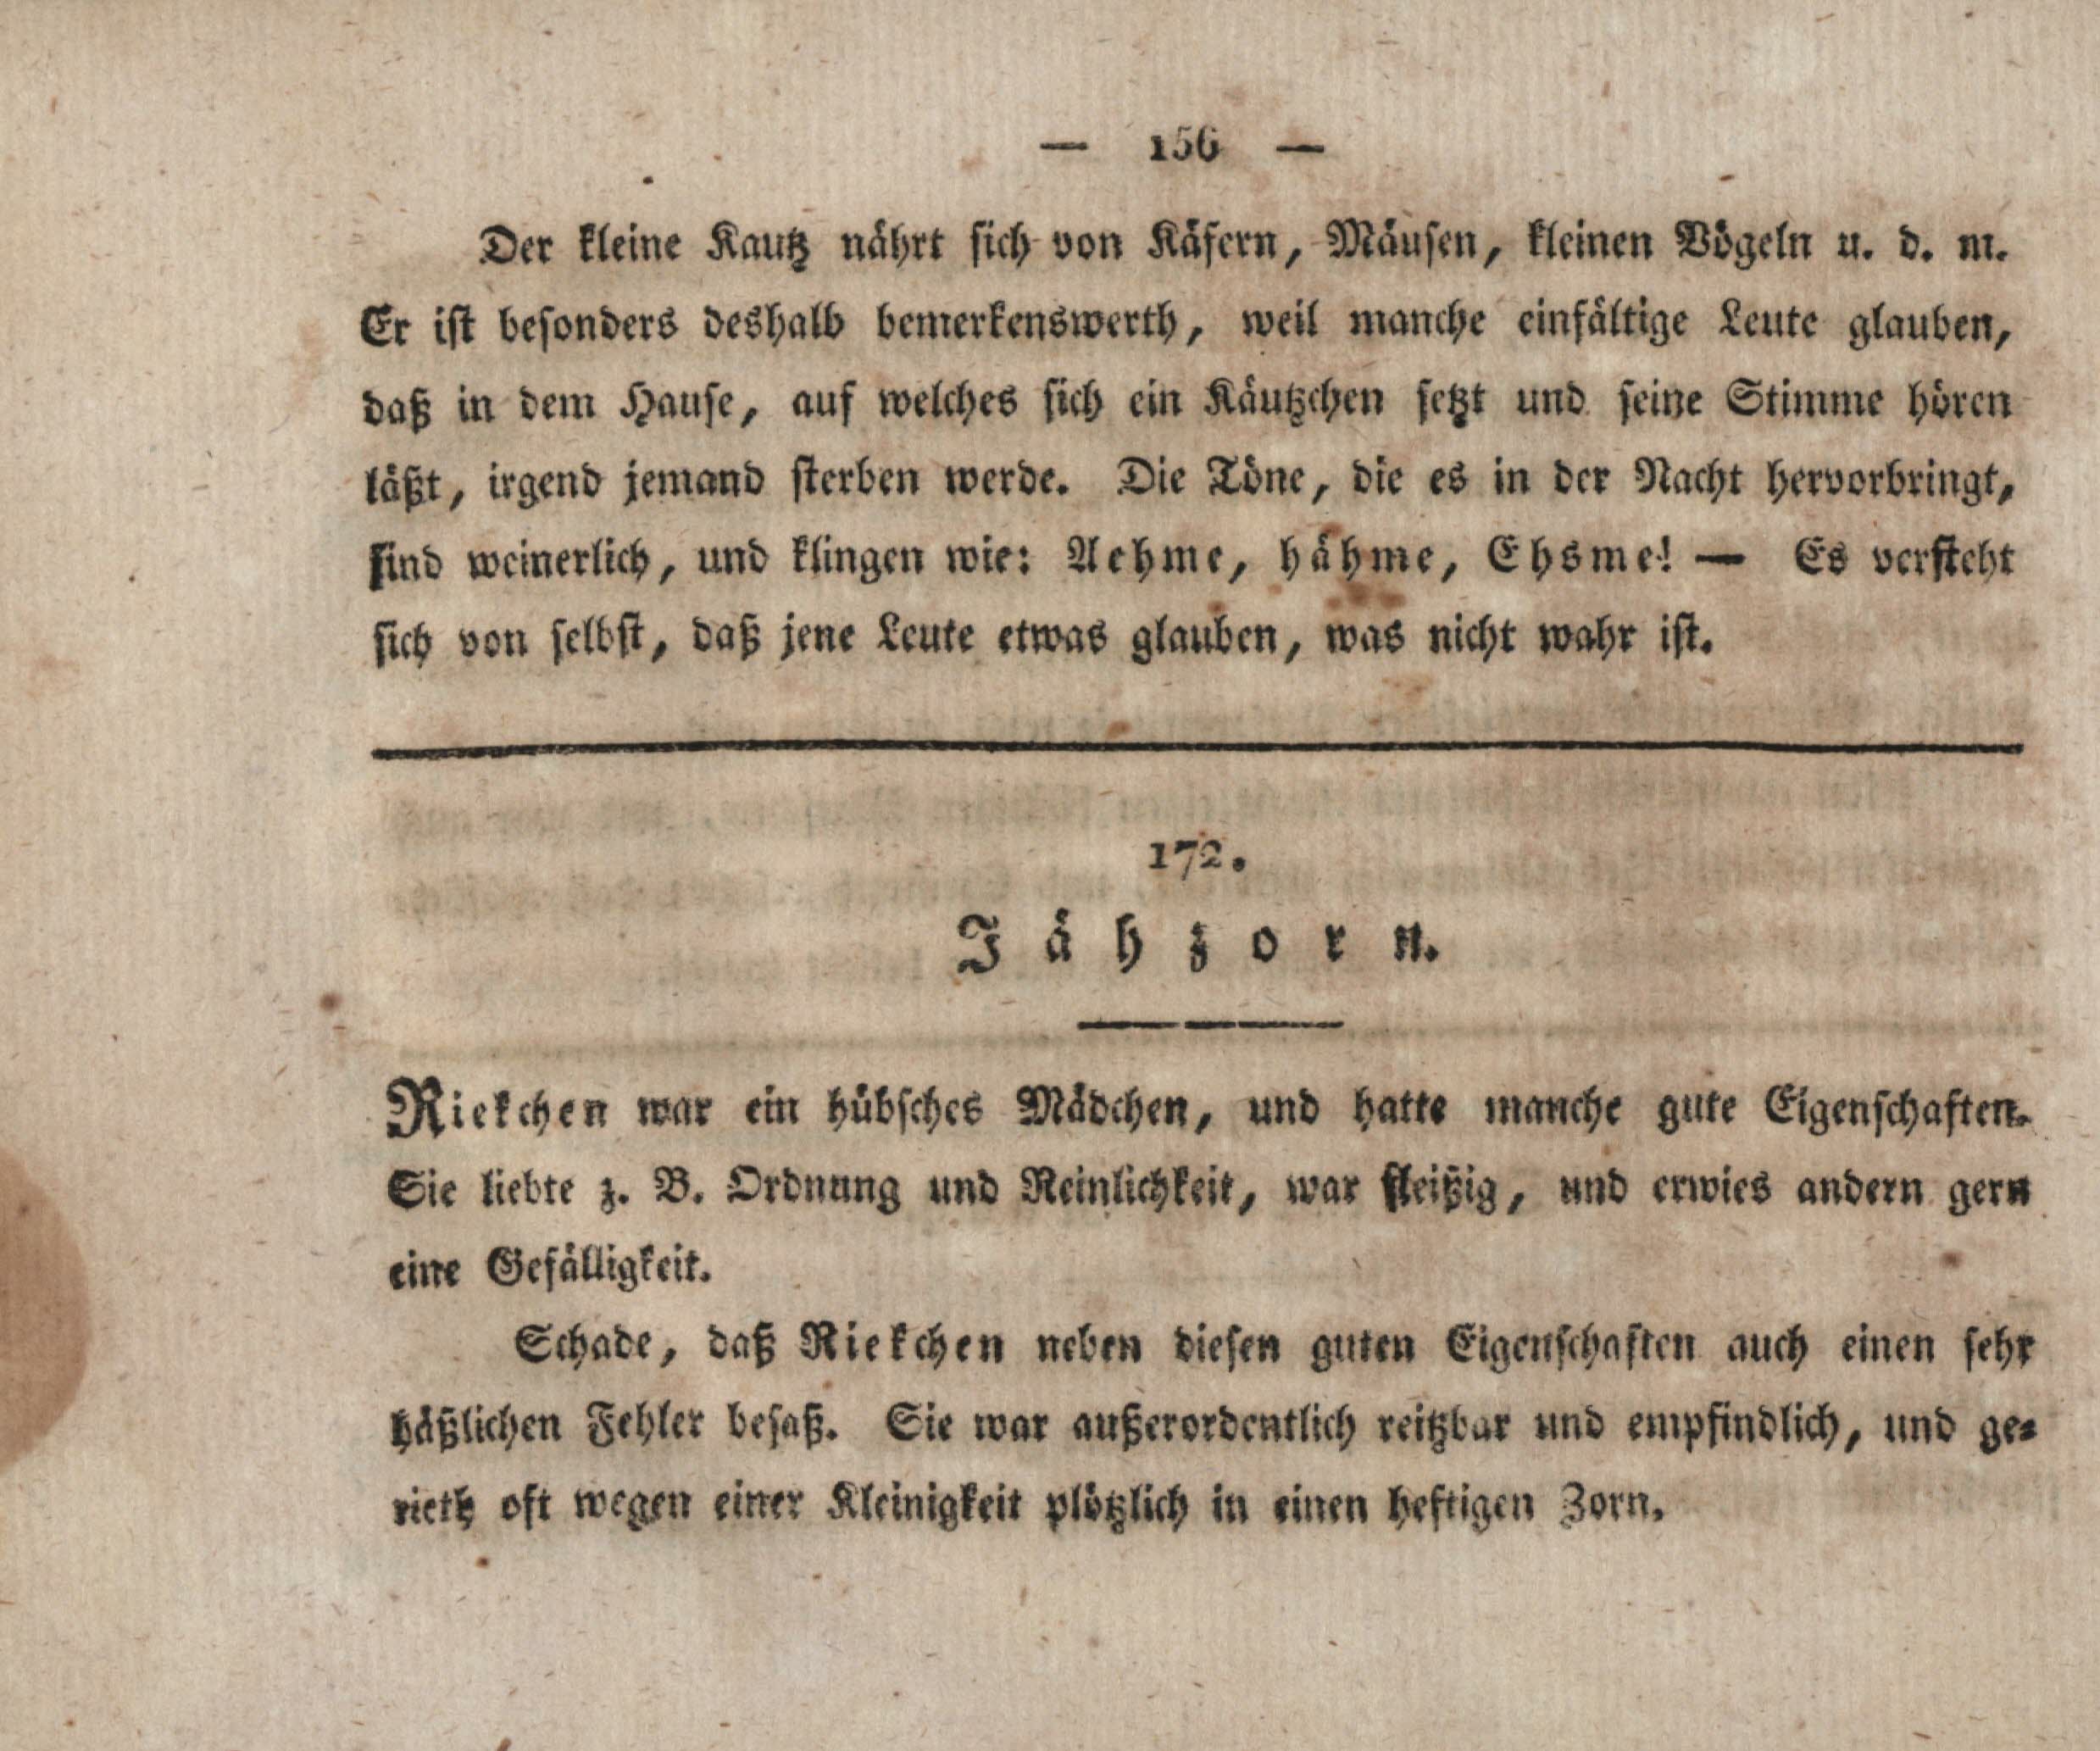 — 156 —
Der kleine Kautz nährt sich von Käfern, Mäusen, kleinen Vögeln u. d. m.
Er ist besonders deshalb bemerkenswerth, weil manche einfältige Leute glauben,
daß in dem Hause, auf welches sich ein Käutzchen setzt und seine Stimme hören
läßt, irgend jemand sterben werde. Die Töne, die es in der Nacht hervorbringt,
sind weinerlich, und klingen wie: Aehme, hähme, Ehsme! — Es versteht
sich von selbst, daß jene Leute etwas glauben, was nicht wahr ist.
172.
Jähzorn.
Riekchen war ein hübsches Mädchen, und hatte manche gute Eigenschaften.
Sie liebte z. B. Ordnung und Reinlichkeit, war fleißig, und erwies andern gern
eine Gefälligkeit.
Schade, daß Riekchen neben diesen guten Eigenschaften auch einen sehr
häßlichen Fehler besaß. Sie war außerordentlich reitzbar und empfindlich, und ge-
rieth oft wegen einer Kleinigkeit plötzlich in einen heftigen Zorn.